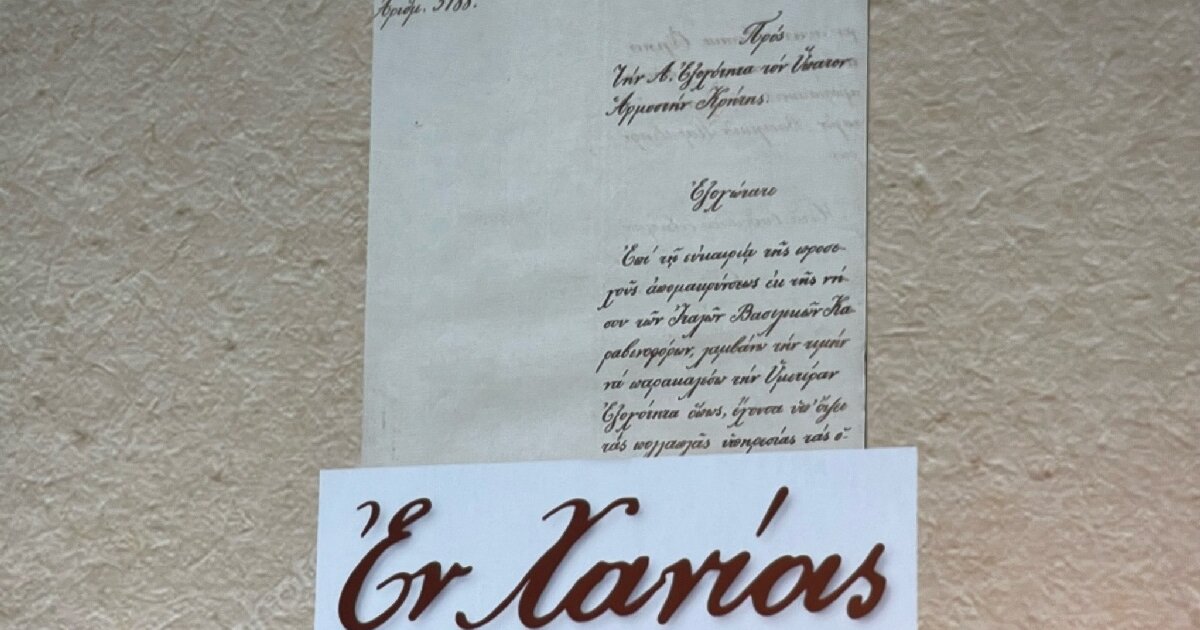 Ἀριθμ. 5188.
Πρός
Τὴν Α. Ἐξοχότητα τὸν Ὕπατον
Ἁρμοστὴν Κρήτης.
Ἐξοχώτατε
Ἐπὶ τῇ εὐκαιρίᾳ τῆς προσε-
χοῦς ἀπομακρύνσεως ἐκ τῆς νή-
σου τῶν Ἰταλῶν Βασιλικῶν Κα-
ραβινοφόρων, λαμβάνω τὴν τιμὴν
νὰ παρακαλέσω τὴν Ὑμετέραν
Ἐξοχότητα ὅπως, ἔχουσα ὑπ' ὄψει
τὰς πολλαπλᾶς ὑπηρεσίας τὰς ὁ-
Ἐν Χανίοις